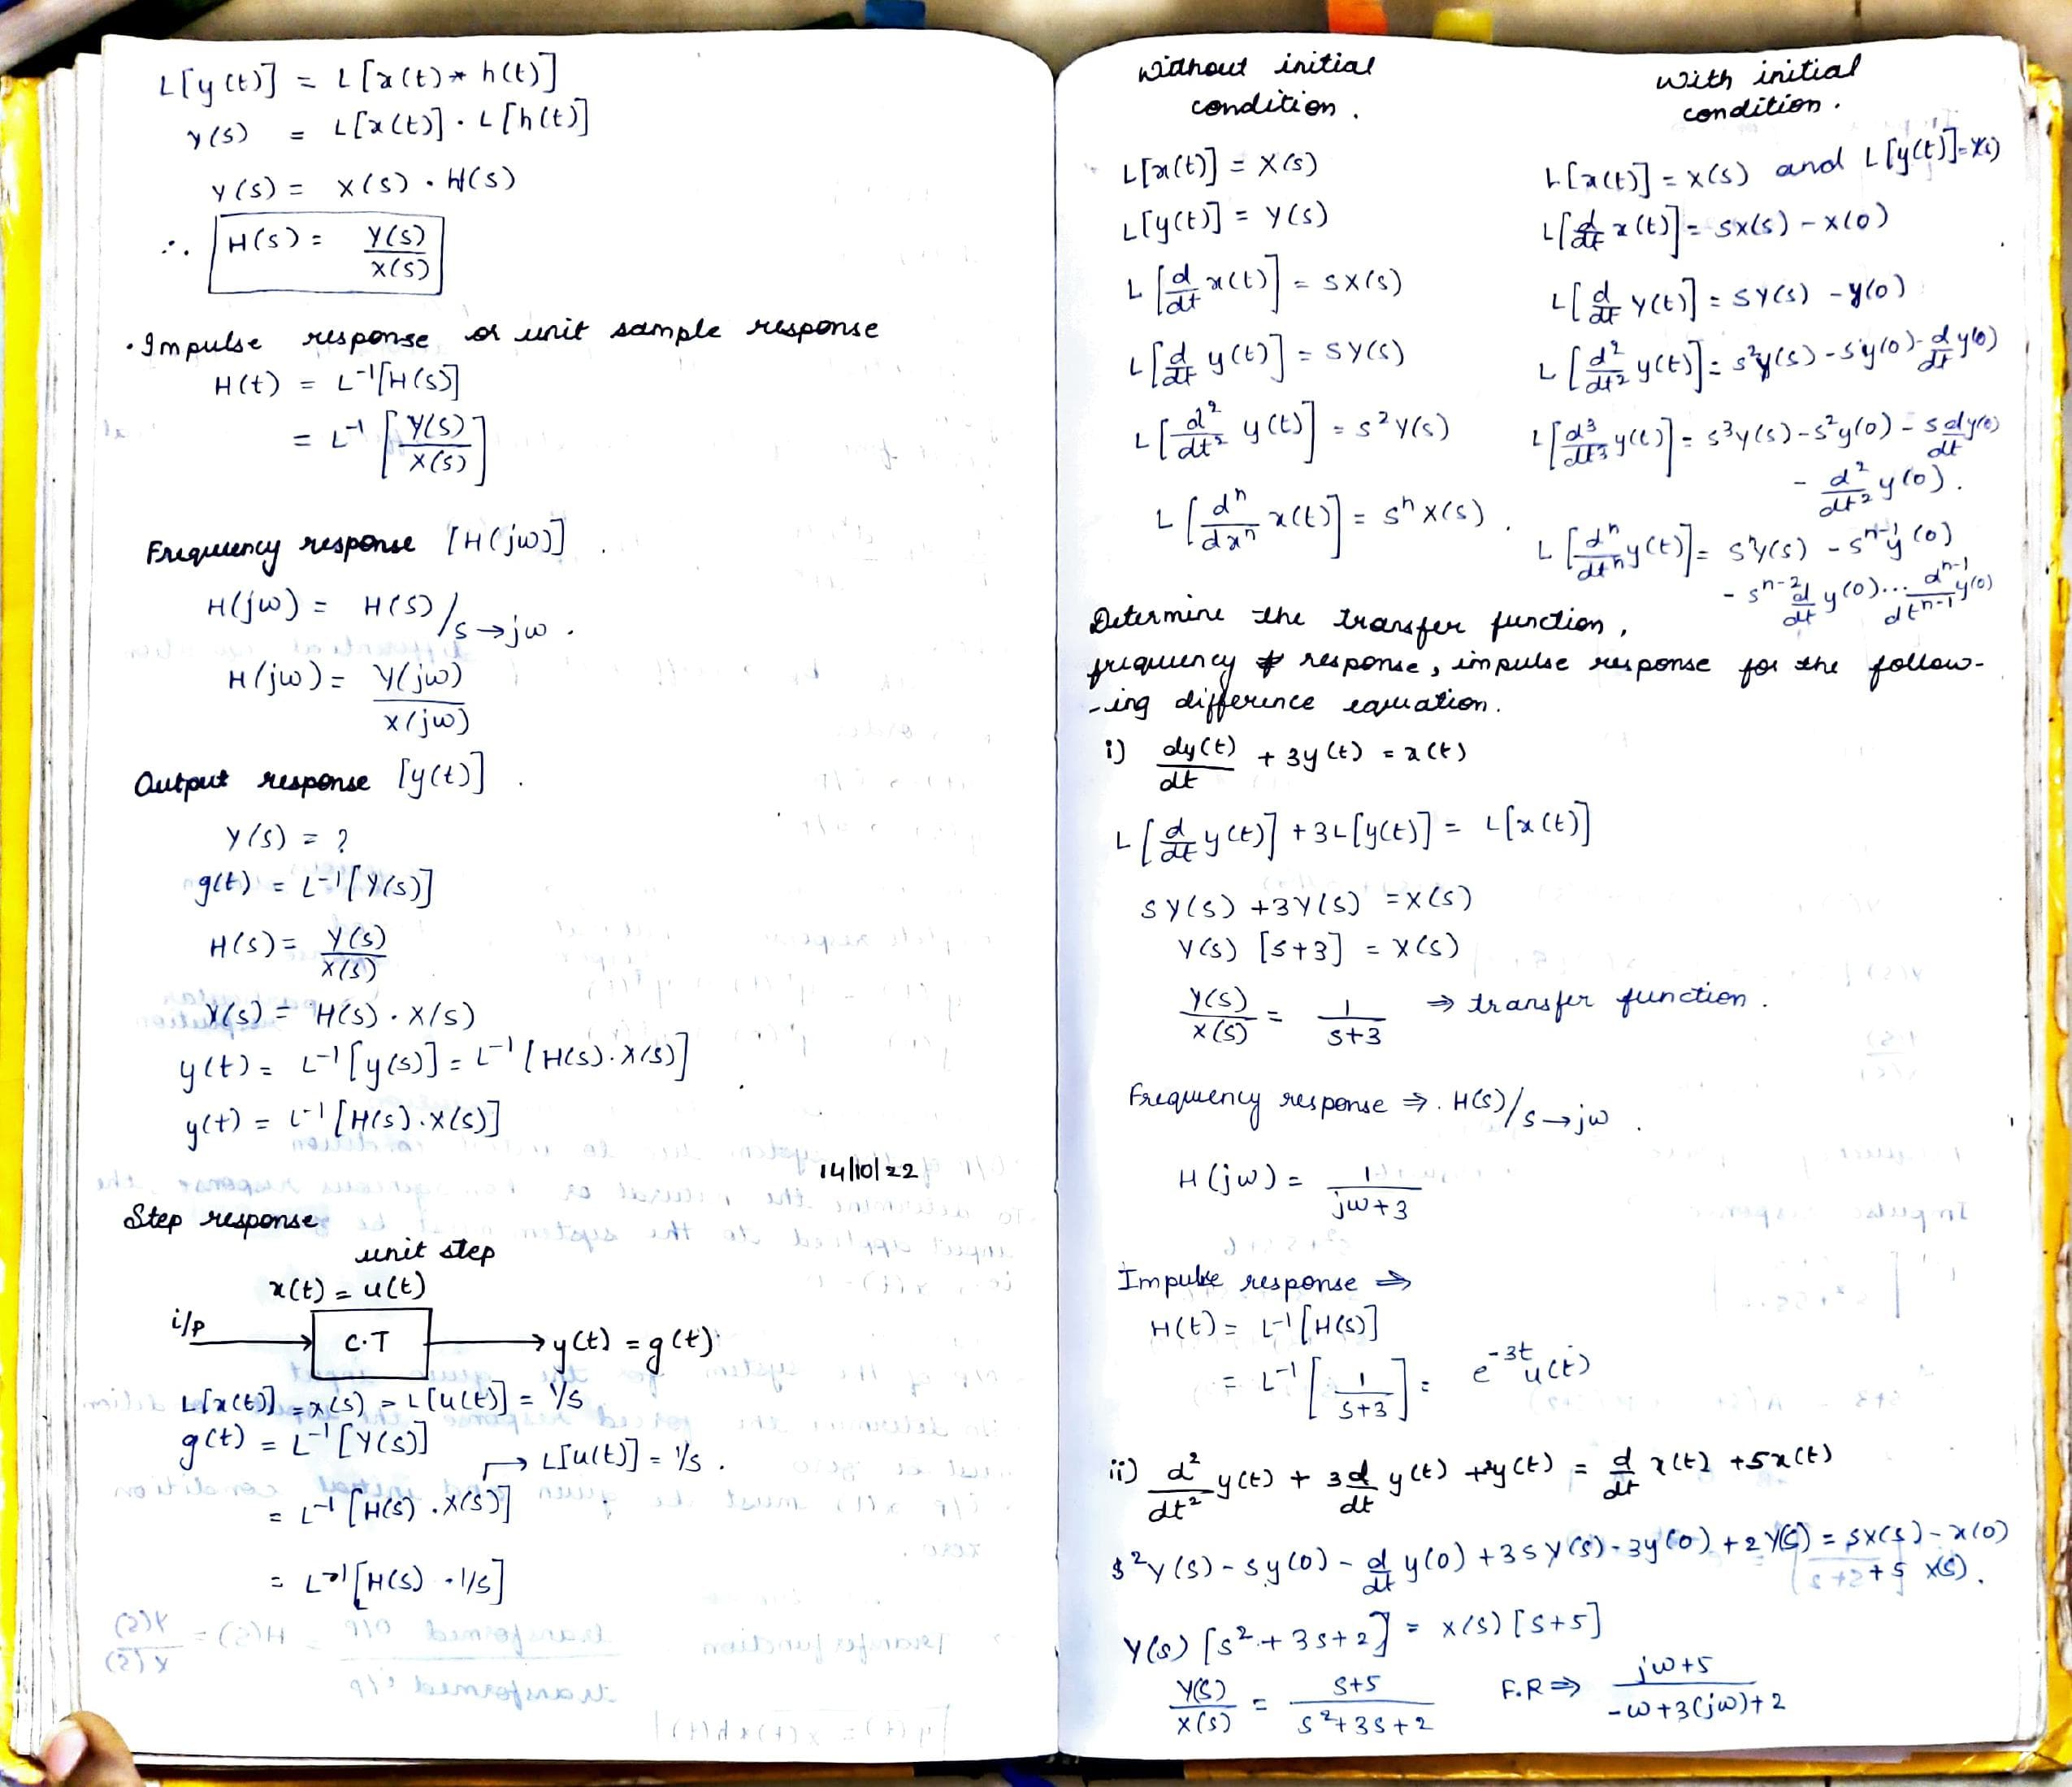 L[y(t)] = L[x(t) * h(t)]
Y(s) = L[x(t)] · L[h(t)]
Y(s) = X(s) · H(s)
∴ H(s) = Y(s)/X(s)
· Impulse response or unit sample response
H(t) = L⁻¹[H(s)]
= L⁻¹[Y(s)/X(s)]
Frequency response [H(jω)]
H(jω) = H(s)/s→jω .
H(jω) = Y(jω)/X(jω)
Output response [y(t)] .
Y(s) = ?
g(t) = L⁻¹[Y(s)]
H(s) = Y(s)/X(s)
Y(s) = H(s) · X(s)
y(t) = L⁻¹[y(s)] = L⁻¹[H(s)·X(s)]
y(t) = L⁻¹[H(s)·X(s)]
14/10/22
Step response
unit step
x(t) = u(t)
i/p → C.T → y(t) = g(t)
L[x(t)] = x(s) = L[u(t)] = 1/s
g(t) = L⁻¹[Y(s)]
→ L[u(t)] = 1/s .
= L⁻¹[H(s) · X(s)]
= L⁻¹[H(s) · 1/s]
without initial
condition .
L[x(t)] = X(s)
L[y(t)] = Y(s)
L[d/dt x(t)] = sX(s)
L[d/dt y(t)] = sY(s)
L[d²/dt² y(t)] = s²Y(s)
L[dⁿ/dxⁿ x(t)] = sⁿX(s) .
with initial
condition .
L[x(t)] = X(s) and L[y(t)] = Y(s)
L[d/dt x(t)] = sX(s) - x(0)
L[d/dt y(t)] = sY(s) - y(0)
L[d²/dt² y(t)] = s²y(s) - sy(0) - d/dt y(0)
L[d³/dt³ y(t)] = s³y(s) - s²y(0) - s dy(0)/dt
- d²/dt² y(0) .
L[dⁿ/dtⁿ y(t)] = sⁿy(s) - sⁿ⁻¹y(0)
- sⁿ⁻² d/dt y(0)... dⁿ⁻¹/dtⁿ⁻¹ y(0)
Determine the transfer function ,
frequency response, impulse response for the follow-
-ing difference equation.
i) dy(t)/dt + 3y(t) = x(t)
L[d/dt y(t)] + 3L[y(t)] = L[x(t)]
sY(s) + 3Y(s) = X(s)
Y(s) [s+3] = X(s)
Y(s)/X(s) = 1/s+3 ⇒ transfer function .
Frequency response ⇒ . H(s)/s→jω .
H(jω) = 1/jω+3
Impulse response ⇒
H(t) = L⁻¹[H(s)]
= L⁻¹[1/s+3] = e⁻³ᵗu(t)
ii) d²/dt² y(t) + 3 d/dt y(t) + 2y(t) = d/dt x(t) + 5x(t)
s²Y(s) - sy(0) - d/dt y(0) + 3sY(s) - 3y(0) + 2Y(s) = sX(s) - x(0)
+ 5 X(s) .
Y(s) [s² + 3s + 2] = X(s) [s+5]
Y(s)/X(s) = s+5/s²+3s+2
F.R ⇒ jω+5/-ω+3(jω)+2